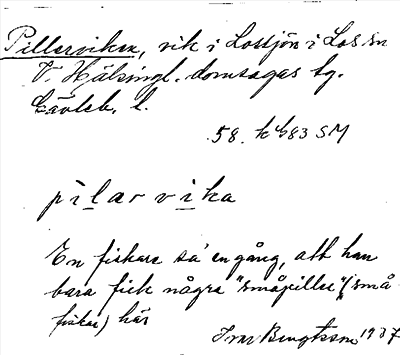 Pillerviken, vik i Lossjön i Los sn
V. Hälsingl. domsagas tg.
Gävleb. l.
58. k 483 SM
pìlarvika
En fiskare sa en gång, att han
bara fick några "småpiller" (små
fiskar) här
Ivar Bengtsson 1937